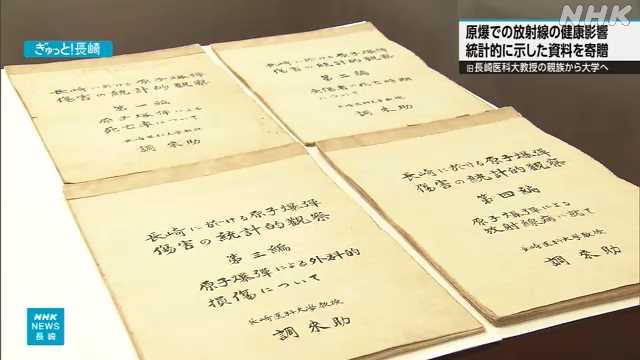 ぎゅっと!長崎
NHK
原爆での放射線の健康影響
統計的に示した資料を寄贈
旧長崎医科大教授の親族から大学へ
長崎に於ける原子爆弾
傷害の統計的観察
第一編
原子爆弾による
死亡率について
長崎医科大学教授
調来助
長崎に於ける原子爆弾
傷害の統計的観察
第二編
負傷者の死亡時期
について
長崎医科大学教授
調来助
長崎に於ける原子爆弾
傷害の統計的観察
第三編
原子爆弾による外科的
損傷について
長崎医科大学教授
調来助
長崎に於ける原子爆弾
傷害の統計的観察
第四編
原子爆弾による
放射線病に就て
長崎医科大学教授
調来助
NHK
NEWS
長崎